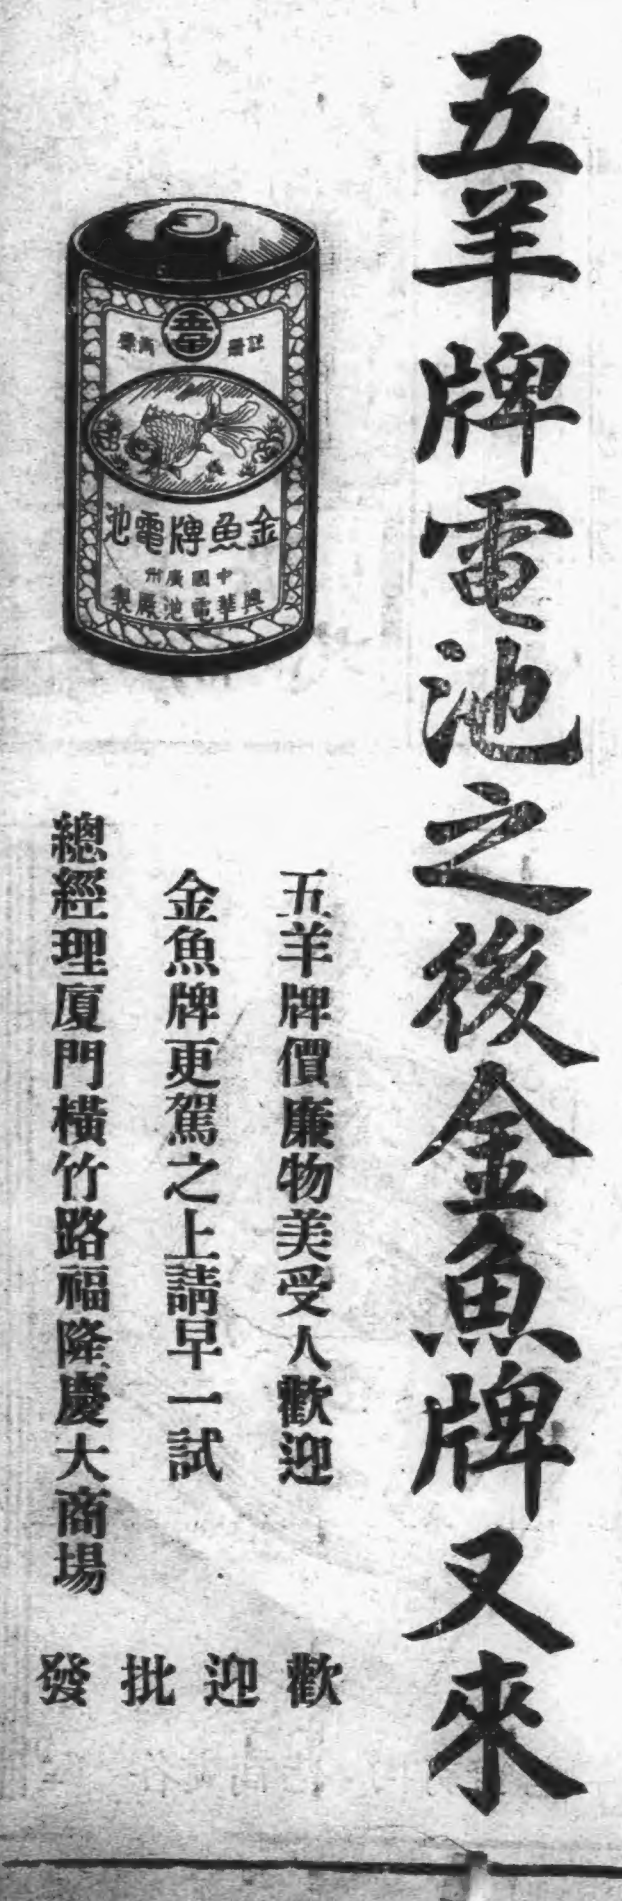 五羊牌電池之後金魚牌又來
註册
商標
金魚牌電池
中國廣州
興華電池厰製
五羊牌價廉物美受人歡迎
金魚牌更駕之上請早一試
總經理廈門橫竹路福隆慶大商場
歡迎批發